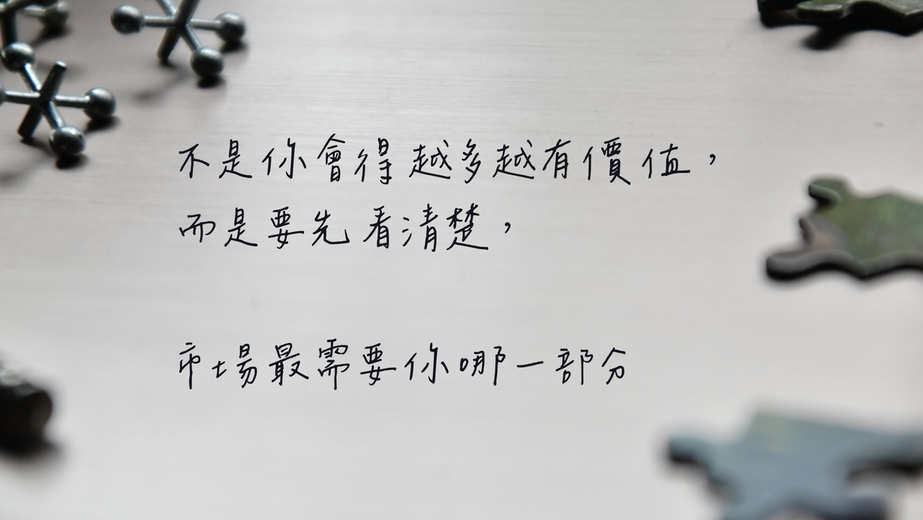 不是你會得越多越有價值，
而是要先看清楚，
市場最需要你哪一部分